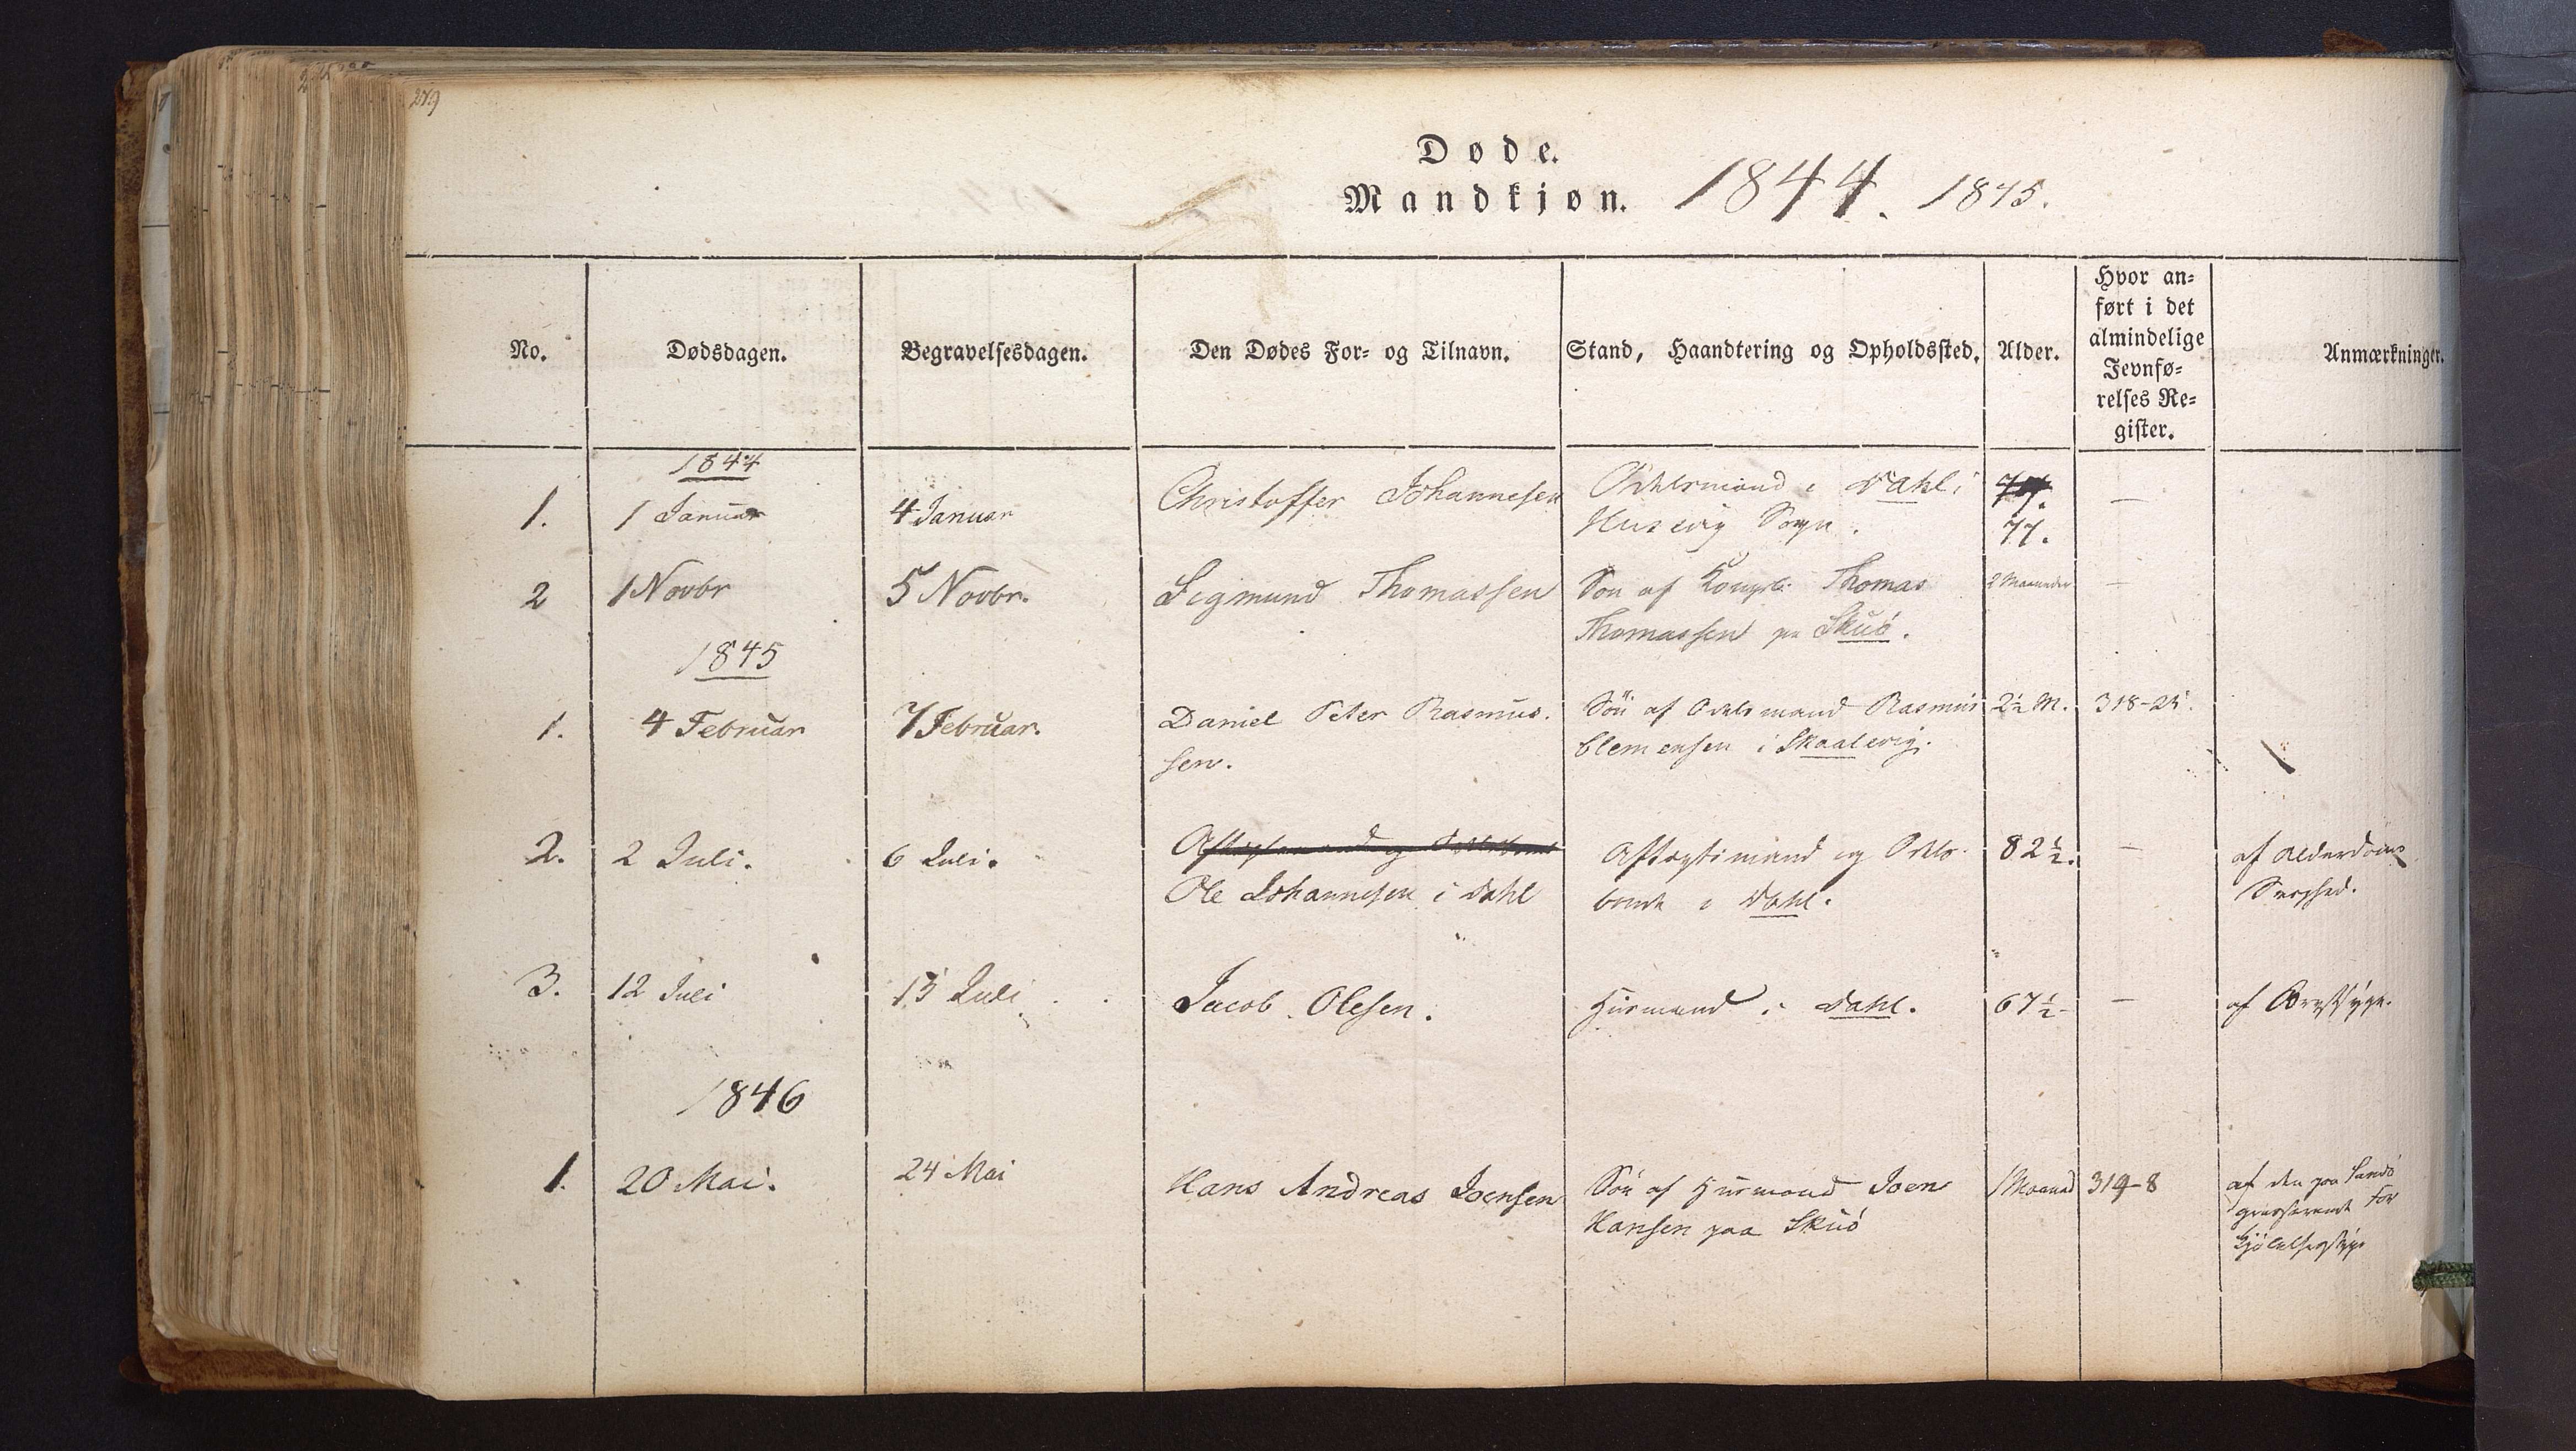 279
Døde.
Mandkjøn. 1844. 1845.
No. Dødsdagen. Begravelsesdagen. Den Dødes For- og Tilnavn. Stand, Haandtering og Opholdssted. Alder. Hvor an-
ført i det
almindelige
Jevnfø-
relses Re-
gister. Anmærkninger.
1844
1. 1 Januar 4 Januar Christoffer Johannesen Odelsmand i Dahl,
Husevig Sogn. 77. —
2 1 Novbr 5 Novbr. Sigmund Thomassen Søn af Thomas 2 Maaneder —
Thomassen pa Skuö.
1845
1. 4 Februar 7 Februar. Daniel Peter Rasmus. Sön af Odelsmand Rasmus 2½ M. 318-25.
sen. Clemensen i Skaalevig.
2. 2 Juli. 6 Juli. Aftægtsmand og Odels- 82½. — af Alderdoms
Ole Johannesen i Dahl bonde i Dahl. Svaghed.
3. 12 Juli 15 Juli Jacob Olesen. Huusmand i Dahl. 67½ — af Brystsyge.
1846
1. 20 Mai. 24 Mai Hans Andreas Joensen Sön af Huusmand Joen 1 Maaned 319-8 af den paa Sandö
Hansen paa Skuö grasserende For
kjölelsessyge